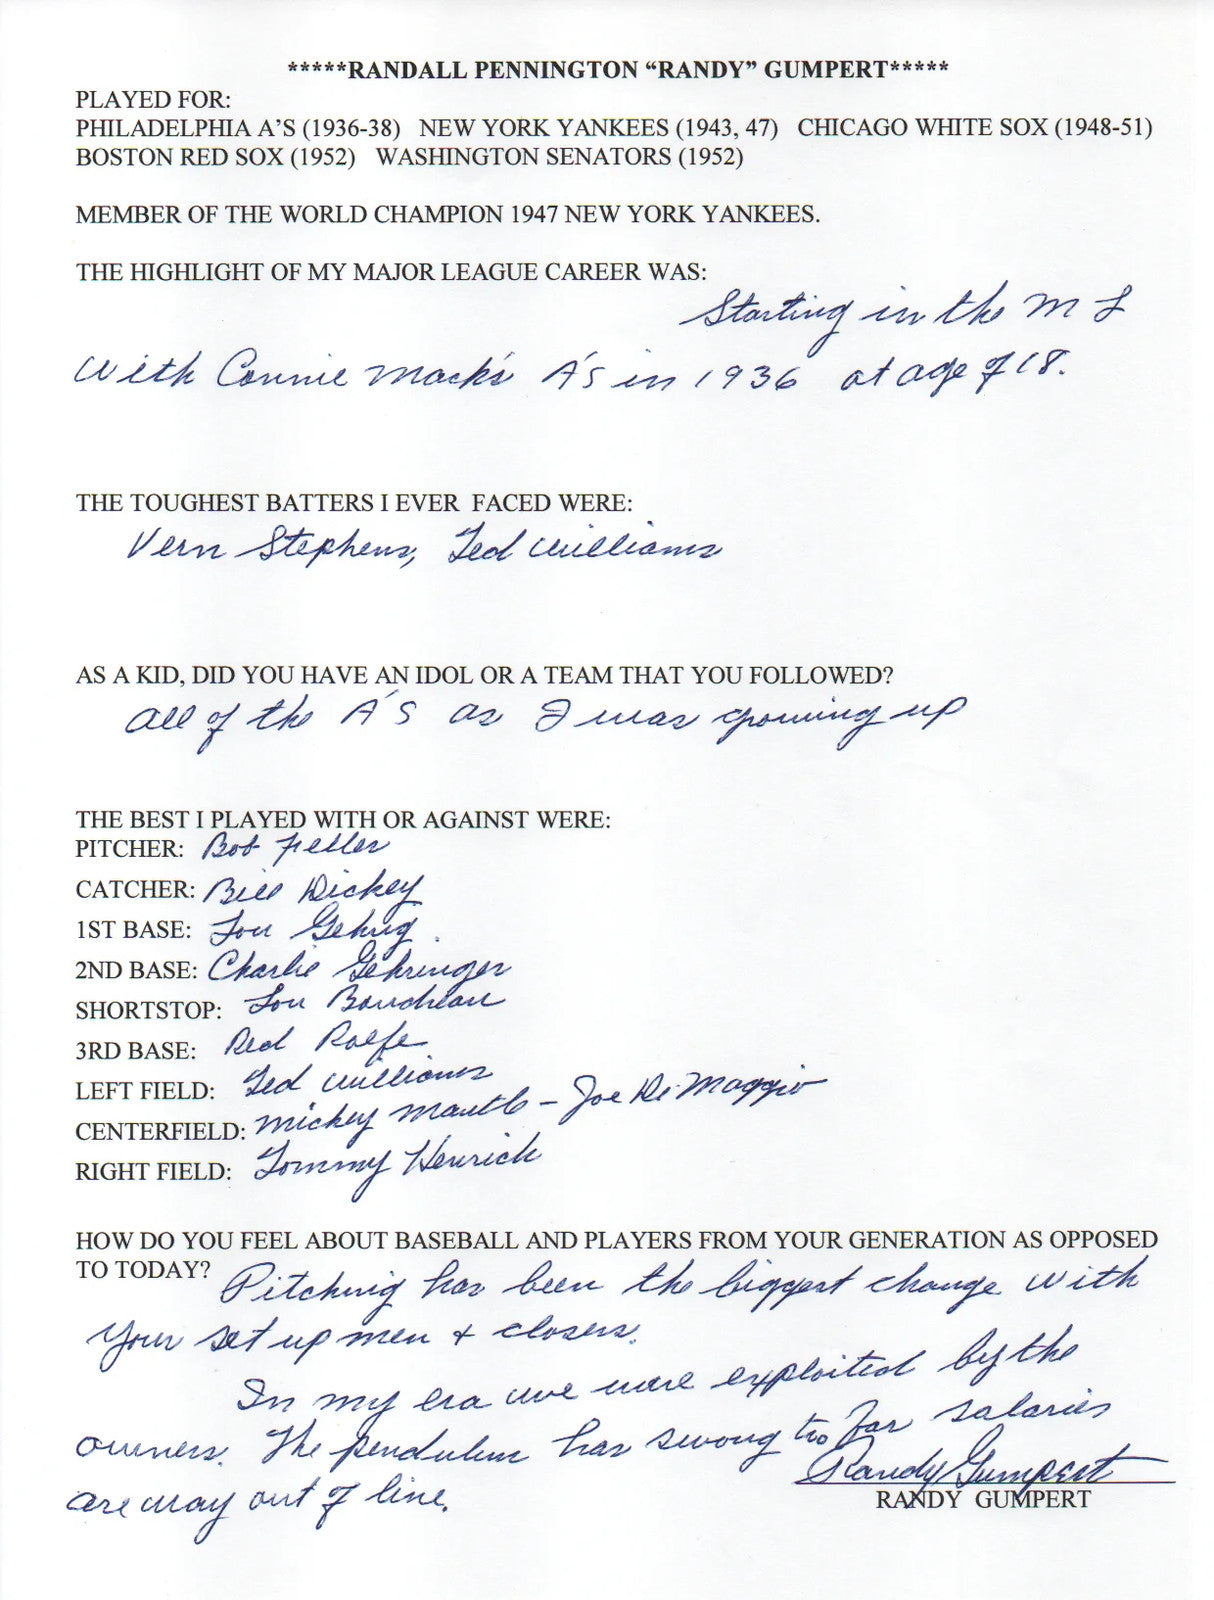 *****RANDALL PENNINGTON “RANDY” GUMPERT*****
PLAYED FOR:
PHILADELPHIA A’S (1936-38) NEW YORK YANKEES (1943, 47) CHICAGO WHITE SOX (1948-51)
BOSTON RED SOX (1952) WASHINGTON SENATORS (1952)
MEMBER OF THE WORLD CHAMPION 1947 NEW YORK YANKEES.
THE HIGHLIGHT OF MY MAJOR LEAGUE CAREER WAS:
Starting in the M L
With Connie Mack's A'S in 1936 at age of 18.
THE TOUGHEST BATTERS I EVER FACED WERE:
Vern Stephens, Ted Williams
AS A KID, DID YOU HAVE AN IDOL OR A TEAM THAT YOU FOLLOWED?
All of the A'S as I was growing up
THE BEST I PLAYED WITH OR AGAINST WERE:
PITCHER: Bob Feller
CATCHER: Bill Dickey
1ST BASE: Lou Gehrig.
2ND BASE: Charlie Gehringer
SHORTSTOP: Lou Boudreau
3RD BASE: Red Rolfe
LEFT FIELD: Ted Williams
CENTERFIELD: Mickey Mantle - Joe DiMaggio
RIGHT FIELD: Tommy Henrick
HOW DO YOU FEEL ABOUT BASEBALL AND PLAYERS FROM YOUR GENERATION AS OPPOSED
TO TODAY? Pitching has been the biggest change with
your set up men + closers.
In my era we were exploited by the
owners. The pendulum has swong too far salaries
are way out of line.
Randy Gumpert
RANDY GUMPERT